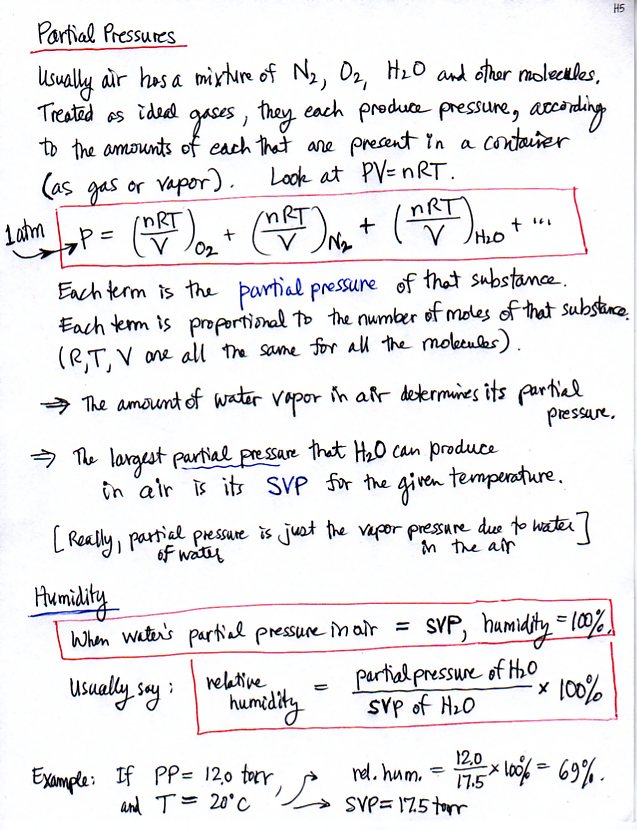 H5
Partial Pressures
Usually air has a mixture of N₂, O₂, H₂O and other molecules.
Treated as ideal gases, they each produce pressure, according
to the amounts of each that are present in a container
(as gas or vapor). Look at PV=nRT.
1 atm → P = (nRT/V)O₂ + (nRT/V)N₂ + (nRT/V)H₂O + ...
Each term is the partial pressure of that substance.
Each term is proportional to the number of moles of that substance.
(R,T,V are all the same for all the molecules).
⇒ The amount of water vapor in air determines its partial
pressure.
⇒ The largest partial pressure that H₂O can produce
in air is its SVP for the given temperature.
[Really, partial pressure is just the vapor pressure due to water]
of water in the air
Humidity
When water's partial pressure in air = SVP, humidity = 100%.
Usually say: relative humidity = partial pressure of H₂O / SVP of H₂O × 100%
Example: If PP = 12.0 torr, → rel. hum. = 12.0/17.5 × 100% = 69%.
and T = 20°C → SVP = 17.5 torr